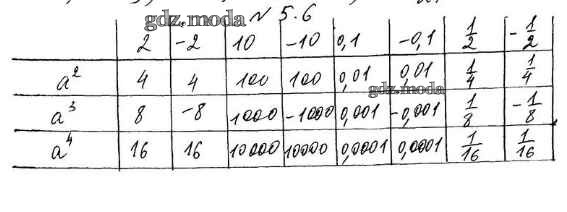 gdz.moda № 5.6
2 -2 10 -10 0,1 -0,1 1/2 -1/2
a² 4 4 100 100 0,01 0,01 1/4 1/4
gdz.moda
a³ 8 -8 1000 -1000 0,001 -0,001 1/8 -1/8
a⁴ 16 16 10000 10000 0,0001 0,0001 1/16 1/16